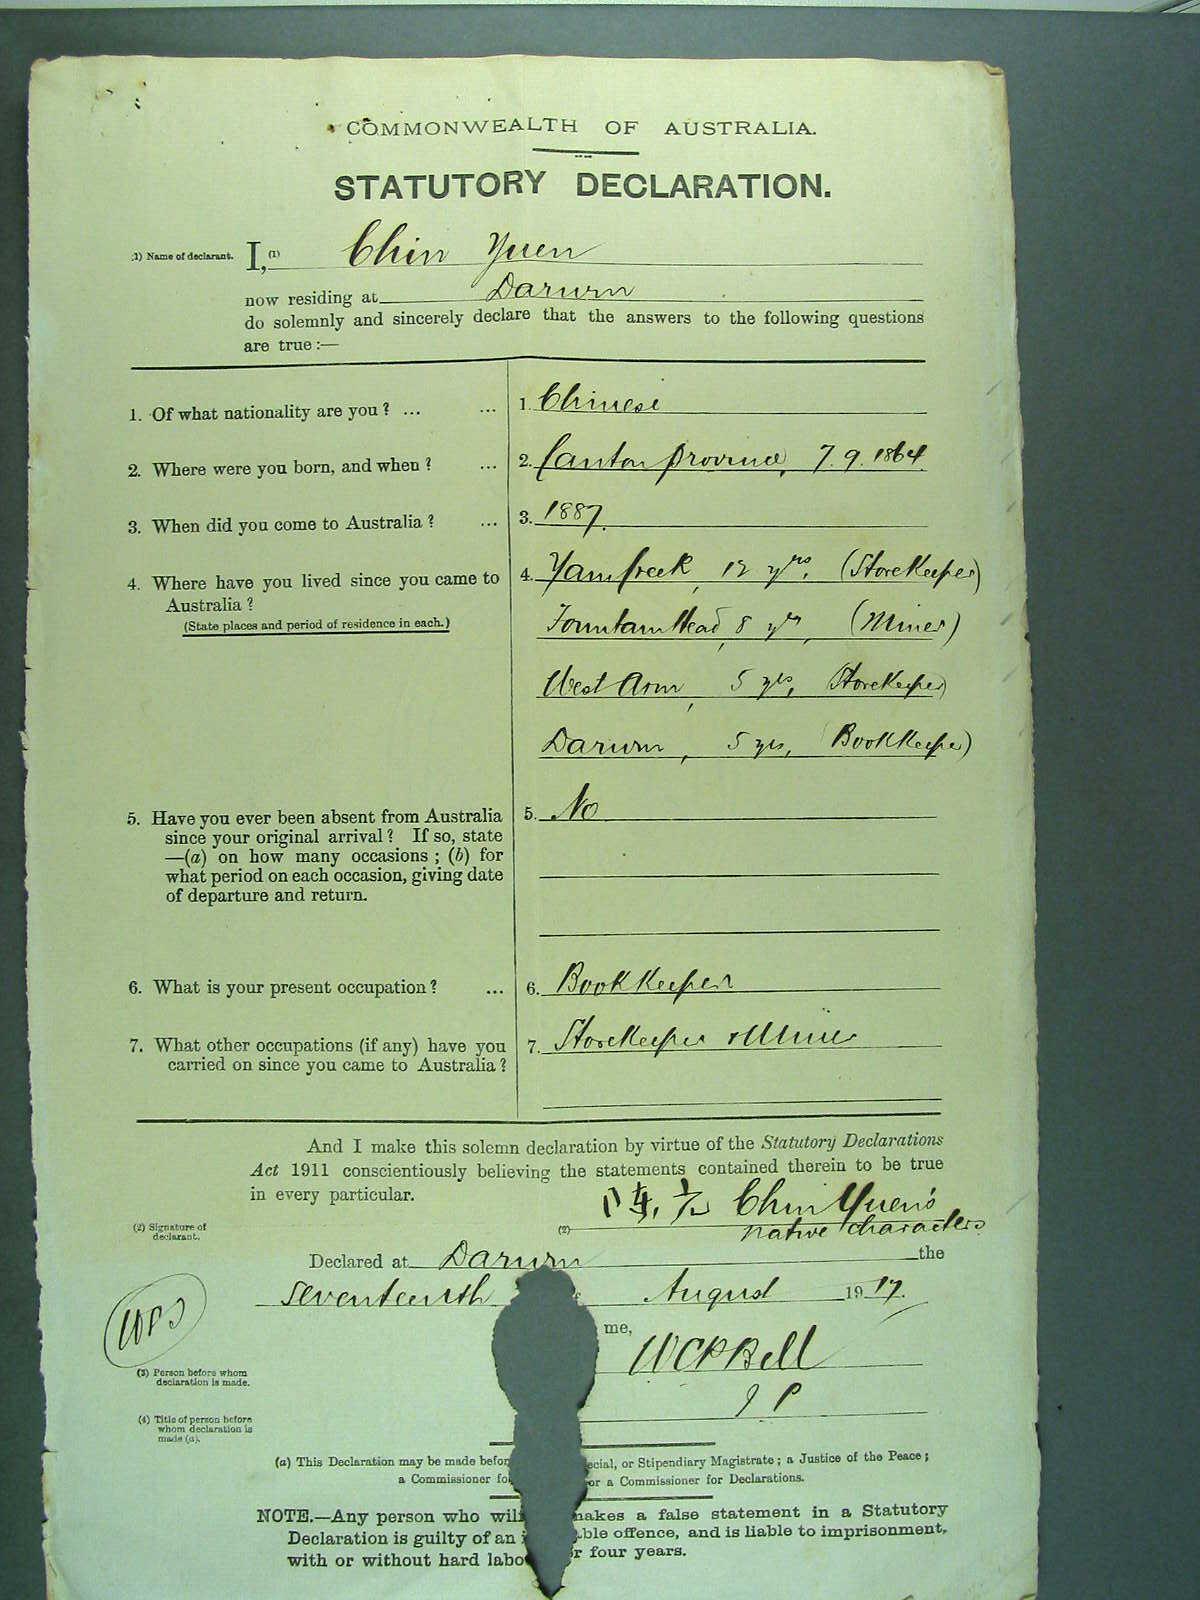 COMMONWEALTH OF AUSTRALIA.
STATUTORY DECLARATION.
(1) Name of declarant. I, (1) Chin Yuen
now residing at Darwin
do solemnly and sincerely declare that the answers to the following questions
are true :—
1. Of what nationality are you ? ... ... 1. Chinese
2. Where were you born, and when ? ... 2. Canton Province, 7.9.1864.
3. When did you come to Australia ? ... 3. 1887.
4. Where have you lived since you came to 4. Yam Creek, 12 yrs, (Storekeeper)
Australia ?
(State places and period of residence in each.) Fountain Head, 8 yrs, (Miner)
West Arm, 5 yrs, (Storekeeper)
Darwin, 5 yrs, (Bookkeeper)
5. Have you ever been absent from Australia 5. No
since your original arrival ? If so, state
—(a) on how many occasions ; (b) for
what period on each occasion, giving date
of departure and return.
6. What is your present occupation ? ... 6. Bookkeeper
7. What other occupations (if any) have you 7. Storekeeper & Miner
carried on since you came to Australia ?
And I make this solemn declaration by virtue of the Statutory Declarations
Act 1911 conscientiously believing the statements contained therein to be true
in every particular.
Chin Yuen's
(2) Signature of (2) native characters
declarant.
Declared at Darwin the
Seventeenth August 1917.
me,
WCPBell
(3) Person before whom
declaration is made.
J P
(4) Title of person before
whom declaration is
made (a).
(a) This Declaration may be made befor ecial, or Stipendiary Magistrate ; a Justice of the Peace ;
a Commissioner fo or a Commissioner for Declarations.
NOTE.—Any person who wil makes a false statement in a Statutory
Declaration is guilty of an i able offence, and is liable to imprisonment,
with or without hard labo r four years.